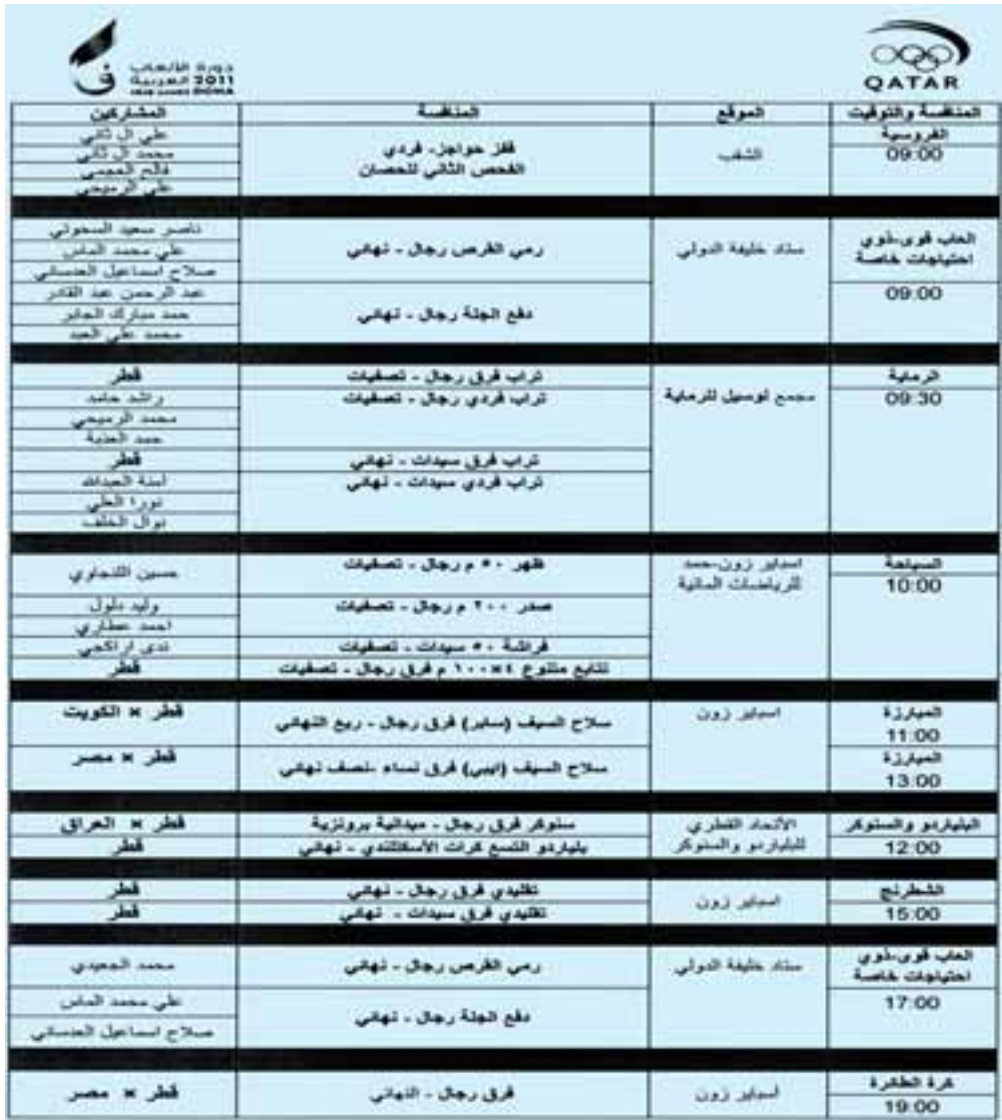 دورة الألعاب
العربية 2011
ARAB GAMES DOHA
QATAR
المنافسة والتوقيت الموقع المنافسة المشاركين
الفروسية
09:00
الشقب
قفز حواجز- فردي
الفحص الثاني للحصان
علي ال ثاني
محمد ال ثاني
فالح العجمي
علي الرميحي
العاب قوى-ذوي
احتياجات خاصة
09:00
ستاد خليفة الدولي
رمي القرص رجال - نهائي
ناصر سعيد السحوتي
علي محمد الماس
صلاح اسماعيل العدساني
دفع الجلة رجال - نهائي
عبد الرحمن عبد القادر
حمد مبارك الجابر
محمد علي العبد
الرماية
09:30
مجمع لوسيل للرماية
تراب فرق رجال - تصفيات
قطر
تراب فردي رجال - تصفيات
راشد حامد
محمد الرميحي
حمد العذبة
تراب فرق سيدات - نهائي
قطر
تراب فردي سيدات - نهائي
امنة العبدالله
نورا العلي
نوال الخلف
السباحة
10:00
اسباير زون-حمد
للرياضات المائية
ظهر ٥٠ م رجال - تصفيات
حسين
صدر ٢٠٠ م رجال - تصفيات
وليد دلول
احمد عطاري
فراشة ٥٠ سيدات - تصفيات
ندى اراكجي
تتابع متنوع ٤×١٠٠ م فرق رجال - تصفيات
قطر
المبارزة
11:00
اسباير زون
سلاح السيف (سابر) فرق رجال - ربع النهائي
قطر × الكويت
المبارزة
13:00
سلاح السيف (ايبي) فرق نساء -نصف نهائي
قطر × مصر
البلياردو والسنوكر
12:00
الأتحاد القطري
للبلياردو والسنوكر
سنوكر فرق رجال - ميدالية برونزية
قطر × العراق
بلياردو التسع كرات الأسكتلندي - نهائي
قطر
الشطرنج
15:00
اسباير زون
تقليدي فرق رجال - نهائي
قطر
تقليدي فرق سيدات - نهائي
قطر
العاب قوى-ذوي
احتياجات خاصة
17:00
ستاد خليفة الدولي
رمي القرص رجال - نهائي
محمد الجعيدي
دفع الجلة رجال - نهائي
علي محمد الماس
صلاح اسماعيل العدساني
كرة الطائرة
19:00
أسباير زون
فرق رجال - النهائي
قطر × مصر